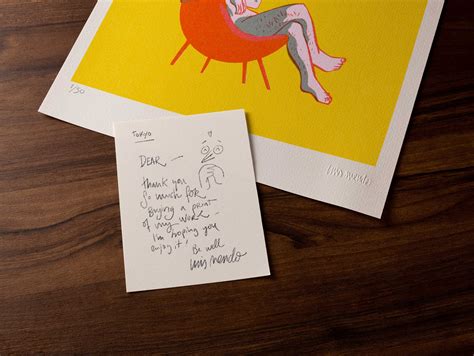 1/30
luis mendo
TOKYO
DEAR —
thank you
so much for
buying a print
of my work
I'm hoping you
enjoy it!
Be well
luis mendo